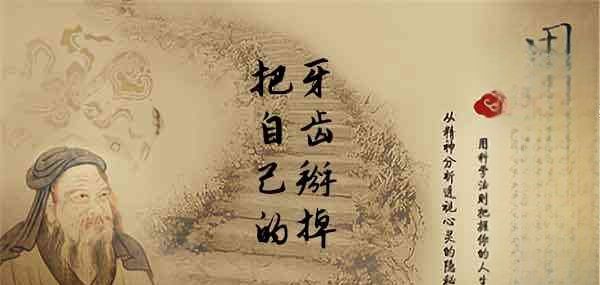 把自己的
牙齿掰掉
从精神分析透视心灵的隐秘
用科学法则把握你的人生